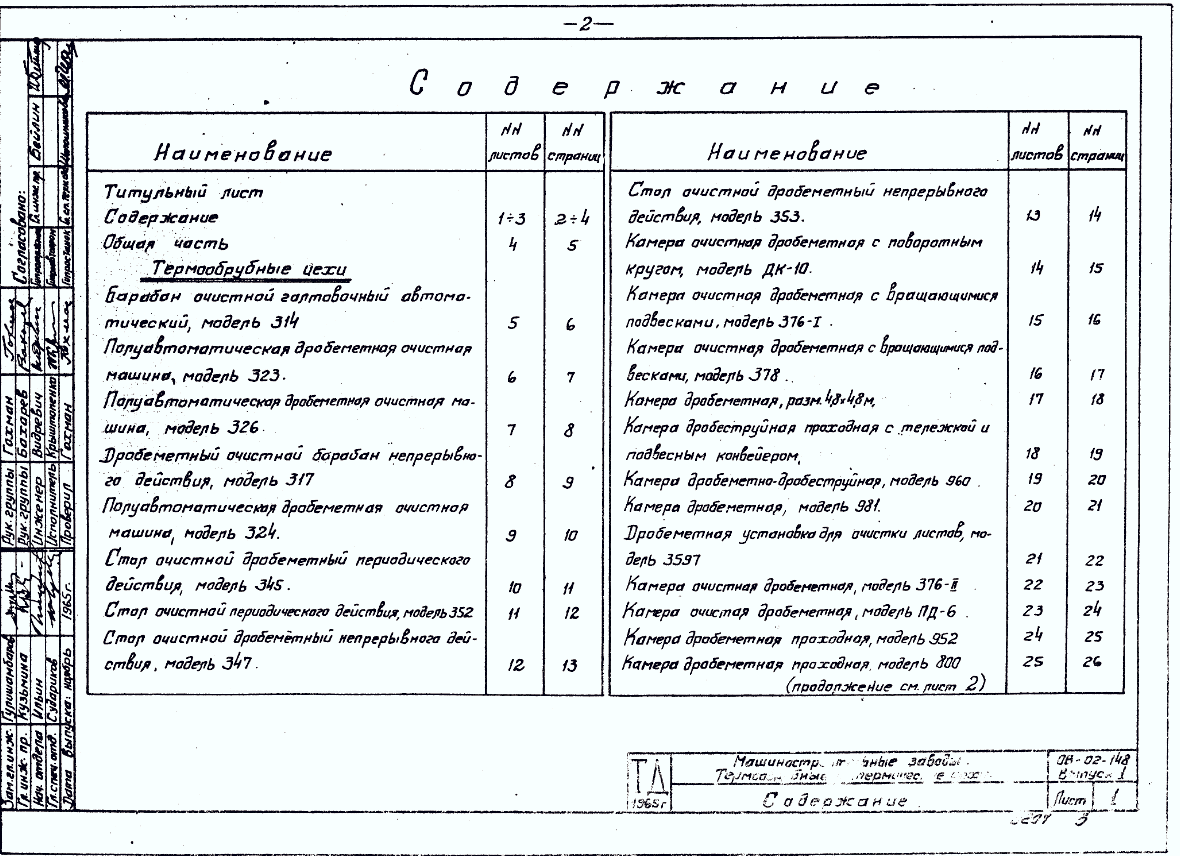 —2—
Содержание
Наименование
NN листов
NN страниц
Титульный лист
Содержание 1÷3 2÷4
Общая часть 4 5
Термообрубные цехи
Барабан очистной галтовочный автома-
тический, модель 314 5 6
Полуавтоматическая дробеметная очистная
машина, модель 323. 6 7
Полуавтоматическая дробеметная очистная ма-
шина, модель 326 7 8
Дробеметный очистной барабан непрерывно-
го действия, модель 317 8 9
Полуавтоматическая дробеметная очистная
машина, модель 324. 9 10
Стол очистной дробеметный периодического
действия, модель 345. 10 11
Стол очистной периодического действия, модель 352 11 12
Стол очистной дробеметный непрерывного дей-
ствия, модель 347. 12 13
Наименование
NN листов
NN страниц
Стол очистной дробеметный непрерывного
действия, модель 353. 13 14
Камера очистная дробеметная с поворотным
кругом, модель ДК-10. 14 15
Камера очистная дробеметная с вращающимися
подвесками, модель 376-I. 15 16
Камера очистная дробеметная с вращающимися под-
весками, модель 378. 16 17
Камера дробеметная, разм. 4,8х4,8м, 17 18
Камера дробеструйная проходная с тележкой и
подвесным конвейером, 18 19
Камера дробеметно-дробеструйная, модель 960. 19 20
Камера дробеметная, модель 981. 20 21
Дробеметная установка для очистки листов, мо-
дель 3597 21 22
Камера очистная дробеметная, модель 376-II 22 23
Камера очистая дробеметная, модель ПД-6. 23 24
Камера дробеметная проходная, модель 952 24 25
Камера дробеметная проходная, модель 800 25 26
(продолжение см. лист 2)
ТД
1965г
заводы.
Содержание
ОВ-02-148
Выпуск 1
Лист 1
3
Согласовано:
Гл. инж. пр. Бейлин
Рук. группы Гохман
Рук. группы Бахарев
Инженер Видревич
Исполнитель Крыштопенко
Проверил Гохман
Зам. гл. инж.
Гл. инж. пр. Кузьмина
Нач. отдела Ильин
Гл. спец. отд. Судариков
Дата выпуска: ноябрь 1965г.